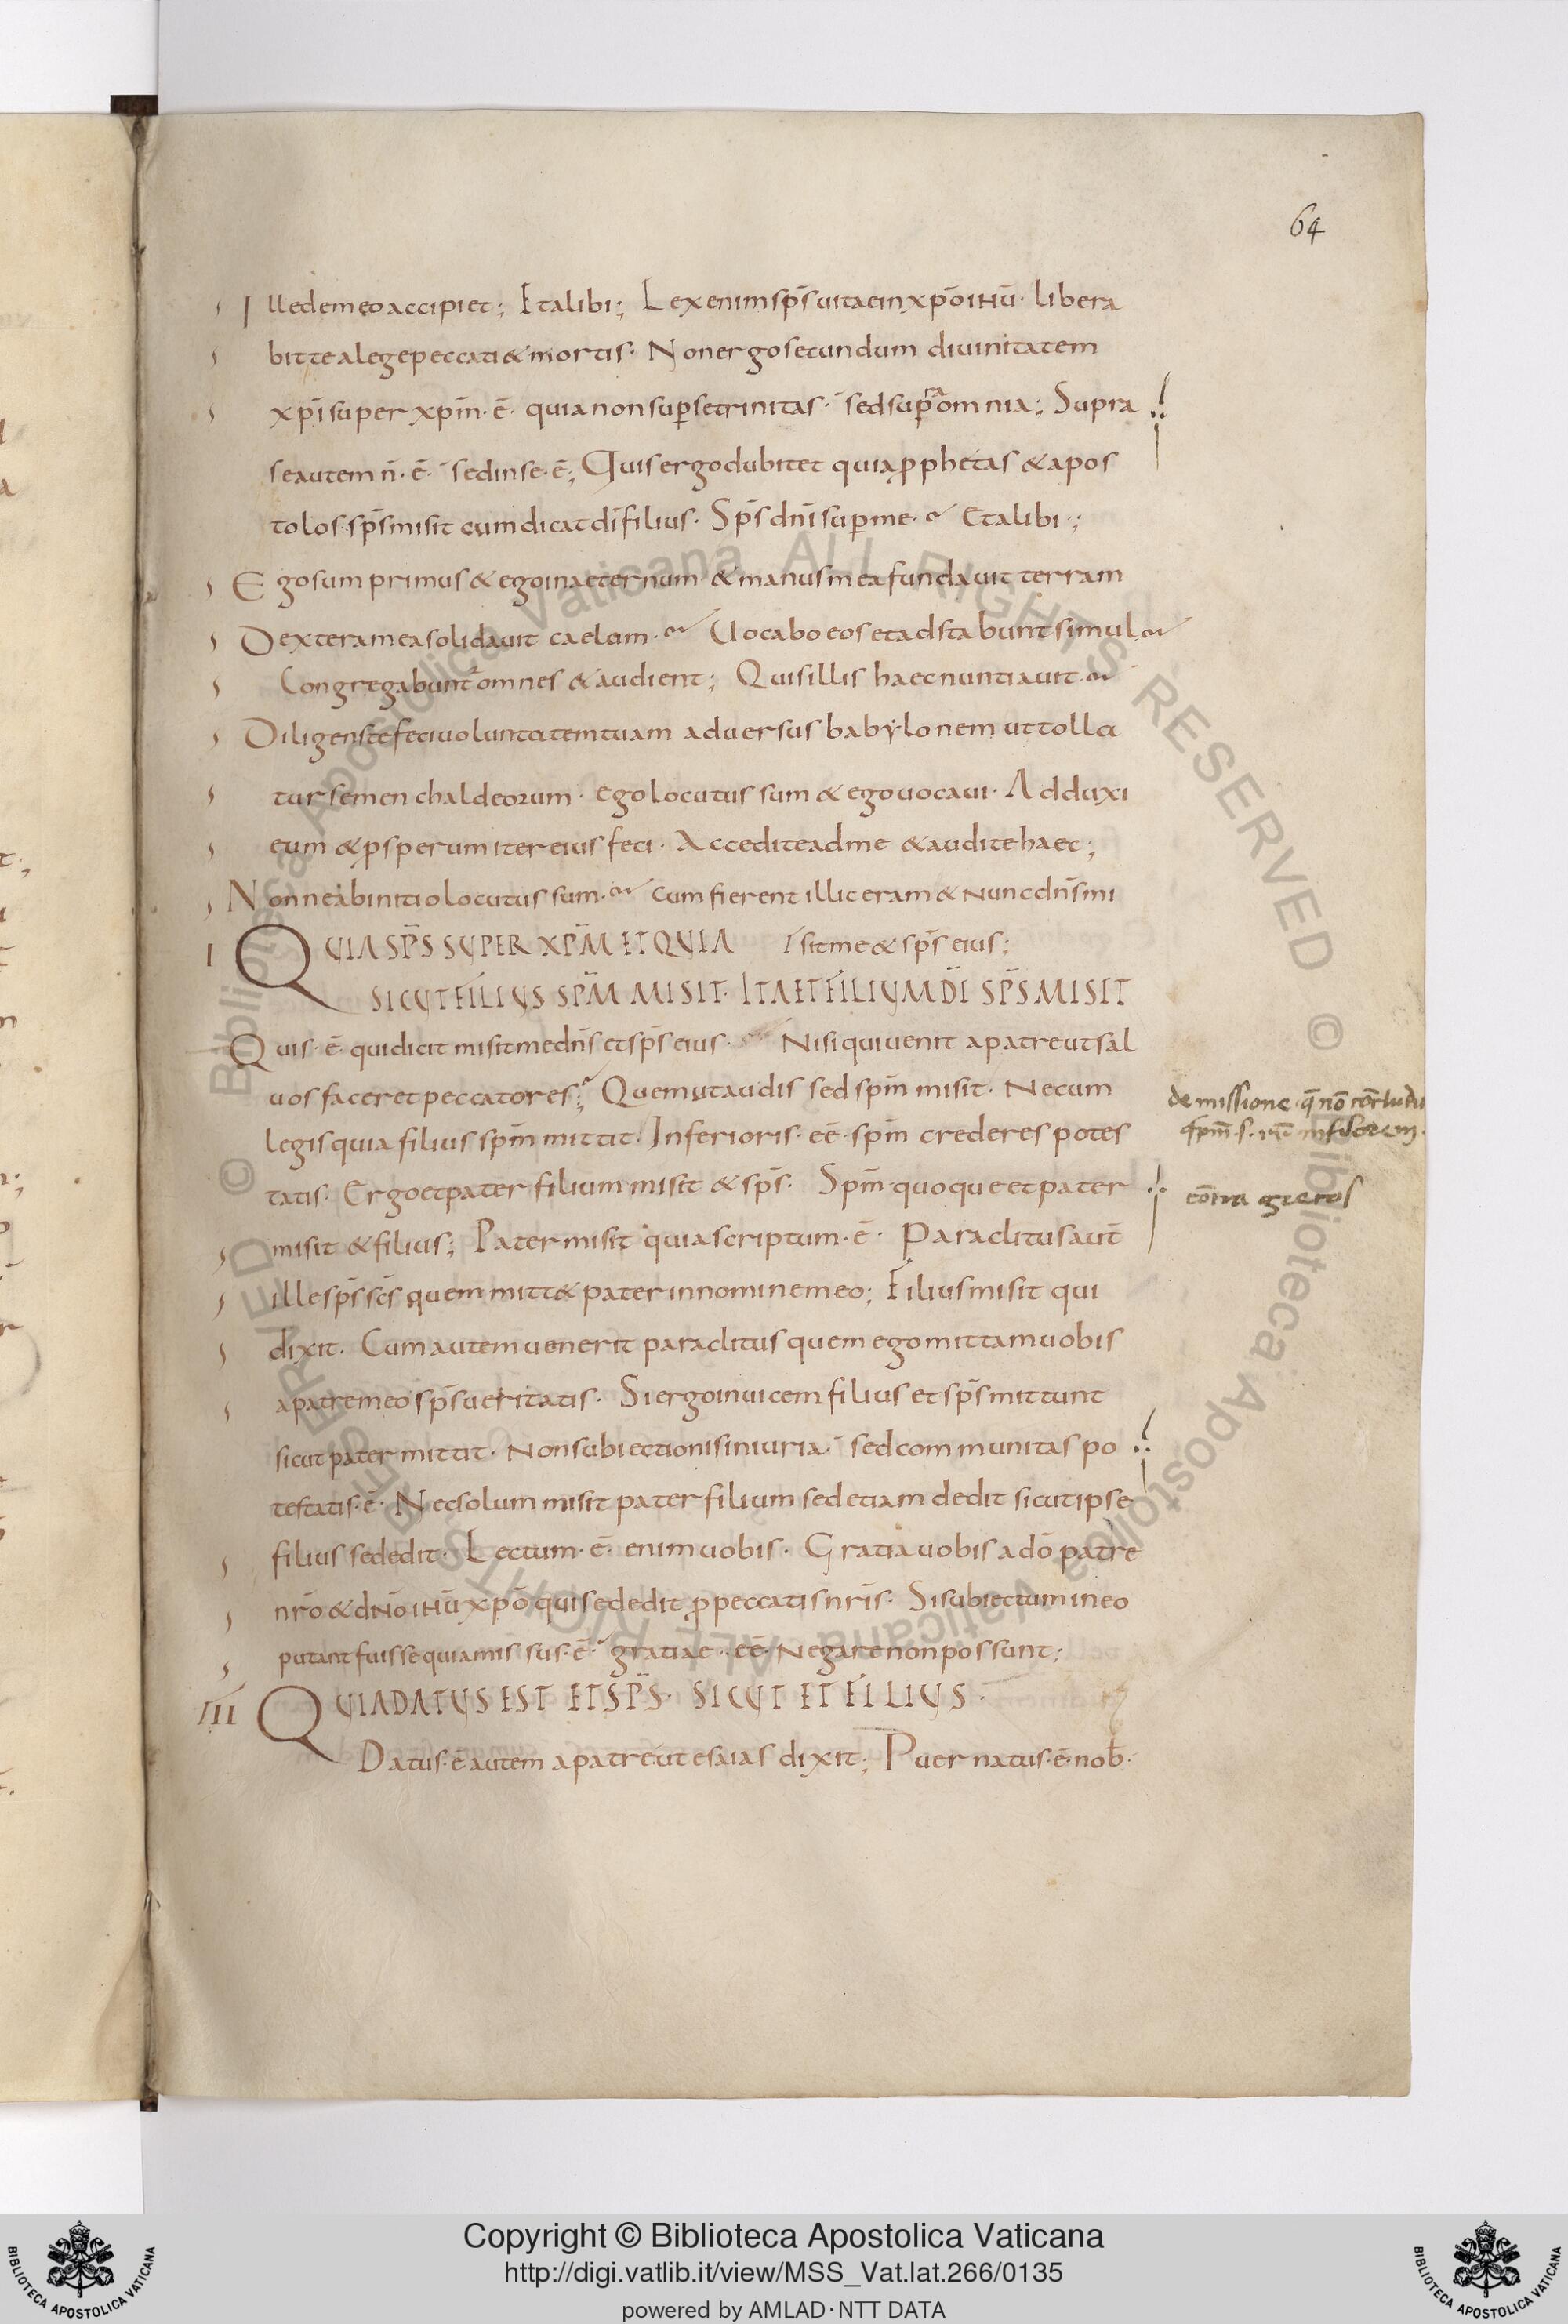 64
Ille de meo accipiet; Et alibi; Lex enim sps̄ uitae in xpō ihū· libera
bit te a lege peccati & mortis· Non ergo secundum diuinitatem
xpī super xpm̄· ē· quia non sup se trinitas· sed supra omnia; Supra
se autem n̄· ē· sed in se· ē; Quis ergo dubitet quia pphetas & apos
tolos sps̄ misit cum dicat dī filius· Sps̄ dnī sup me· Et alibi;
Ego sum primus & ego in aeternum & manus mea fundauit terram
Dextera mea solidauit caelum· Uocabo eos et adstabunt simul
Congregabunt̄ omnes & audient; Quis illis haec nuntiauit·
Diligens te feci uoluntatem tuam aduersus babylonem ut tolla
tur semen chaldeorum· ego locutus sum & ego uocaui· Adduxi
eum & psperum iter eius feci· Accedite ad me & audite haec;
Nonne ab initio locutus sum· cum fierent illic eram & nunc dns̄ mi
I QUIA SPS̄ SUPER XPM̄ ET QUIA sit me & sps̄ eius;
SICUT FILIUS SPM̄ MISIT· ITA ET FILIUM DĪ SPS̄ MISIT
Quis· ē· qui dicit misit me dns̄ et sps̄ eius· Nisi qui uenit a patre ut sal
uos faceret peccatores; Quem ut audis sed spm̄ misit· Ne cum
legis quia filius spm̄ mittit· Inferioris· eē· spm̄ crederes potes
tatis· Ergo et pater filium misit & sps̄· Spm̄ quoque et pater
misit & filius; Pater misit quia scriptum· ē· Paraclitus aut̄
ille sps̄ scs̄ quem mitt& pater in nomine meo; Filius misit qui
dixit· Cum autem uenerit paraclitus quem ego mittam uobis
a patre meo sps̄ ueritatis· Si ergo inuicem filius et sps̄ mittunt
sicut pater mittit· Non subiectionis iniuria· sed communitas po
testatis· ē· Nec solum misit pater filium sed etiam dedit sicut ipse
filius se dedit· Lectum· ē· enim uobis· Gratia uobis a dō patre
nrō & dnō ihū xpō qui se dedit p peccatis nrīs· Si subiectum in eo
putant fuisse quia missus· ē· gratiae· eē· Negare non possunt;
III QUIA DATUS EST ET SPS̄· SICUT ET FILIUS·
Datus· ē autem a patre ut esaias dixit; Puer natus· ē· nob̄·
de missione
contra grecos
Copyright © Biblioteca Apostolica Vaticana
http://digi.vatlib.it/view/MSS_Vat.lat.266/0135
powered by AMLAD·NTT DATA
BIBLIOTECA APOSTOLICA VATICANA
BIBLIOTECA APOSTOLICA VATICANA
© Biblioteca Apostolica Vaticana ALL RIGHTS RESERVED
© Biblioteca Apostolica Vaticana ALL RIGHTS RESERVED